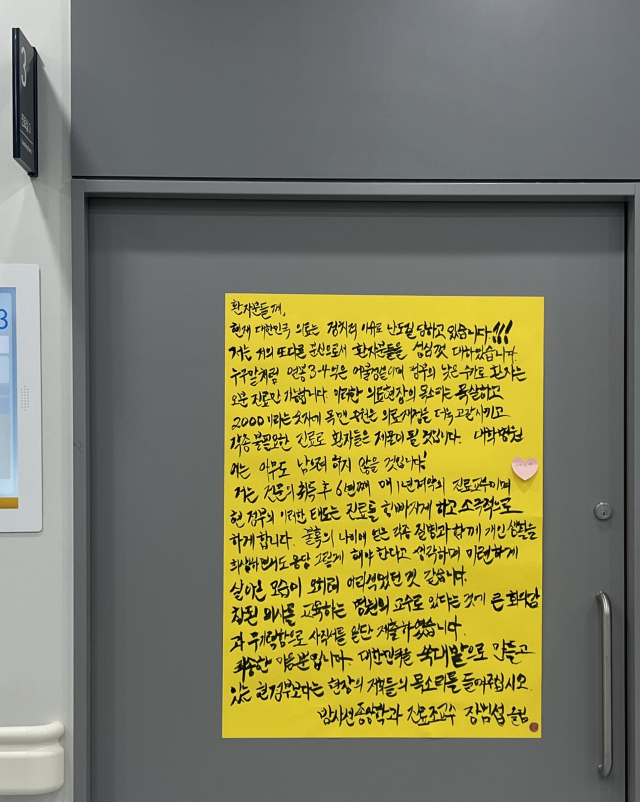 3
3
환자분들께,
현재 대한민국 의료는 정치적 이슈로 난도질 당하고 있습니다!!!
저는 저의 또다른 분신으로서 환자분들을 성심껏 대하였습니다.
누구말처럼 연봉 3-4억은 어불성설이며 정부의 낮은 수가로 환자는
오분 진료만 가능합니다. 이러한 의료현장의 목소리는 묵살하고
2000이라는 숫자에 목맨 의료재정을 더욱 고갈시키고
각종 불필요한 진료로 환자들은 제물이 될 것입니다. 대학병원
에는 아무도 남으려 하지 않을 것입니다!
저는 전문의 취득 후 6번째 매 1년 계약의 진료교수이며
현 정부의 이러한 태도는 진료를 힘빠지게 하고 소극적으로
하게 합니다. 불혹의 나이에 얻은 각종 질병과 함께 개인 생활을
희생하면서도 응당 그렇게 해야 한다고 생각하며 미련하게
살아온 모습이 오히려 어리석었던 것 같습니다.
참된 의사를 교육하는 병원의 교수로 있다는 것에 큰 회의감
과 무기력함으로 사직서를 일단 제출하였습니다.
죄송한 마음뿐입니다. 대한민국을 쑥대밭으로 만들고
있는 현 정부보다는 현장의 저희들의 목소리를 들어주십시오.
방사선종양학과 진료조교수 장범섭 올림